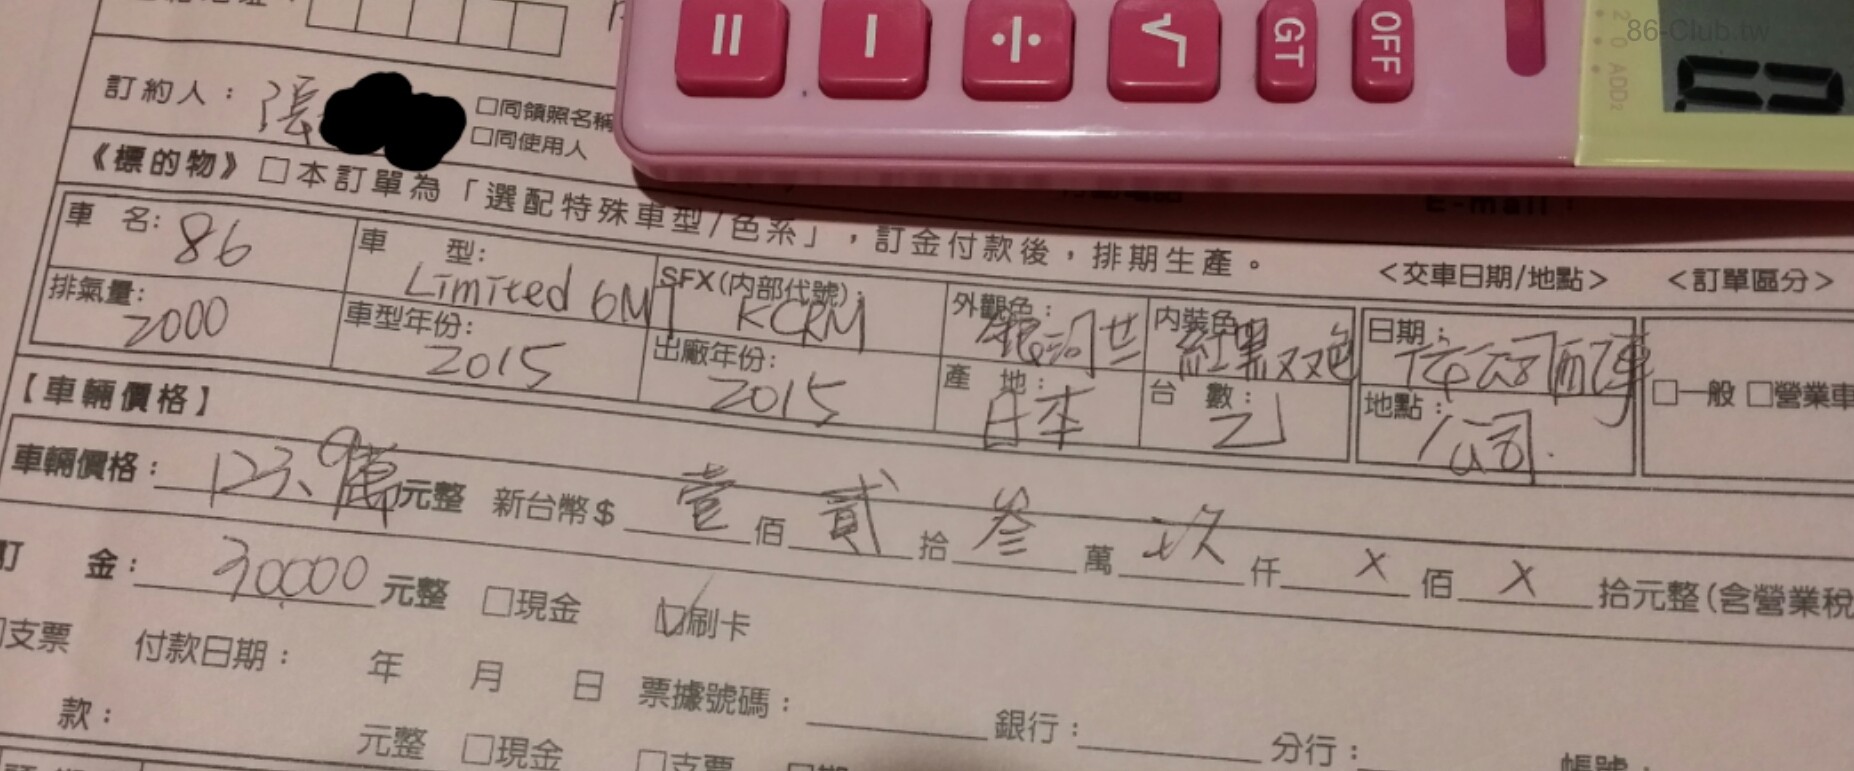 = - ÷ √ GT OFF
2 0 ADD₂
86-Club.tw
訂約人：張
□同領照名稱
□同使用人
《標的物》□本訂單為「選配特殊車型/色系」，訂金付款後，排期生產。
<交車日期/地點> <訂單區分>
車 名: 86 車 型: Limited 6MT SFX(內部代號): KCRM 外觀色: 內裝色 紅黑双色 日期: □一般 □營業車
排氣量: 2000 車型年份: 2015 出廠年份: 2015 產 地: 日本 台 數: 乙 地點: 公司.
【車輛價格】
車輛價格: 123.9萬 元整 新台幣$ 壹 佰 貳 拾 叁 萬 玖 仟 X 佰 X 拾元整(含營業稅
訂 金: 30000 元整 □現金 ☑刷卡
□支票 付款日期: 年 月 日 票據號碼: 銀行: 分行: 帳號:
款: 元整 □現金 □支票